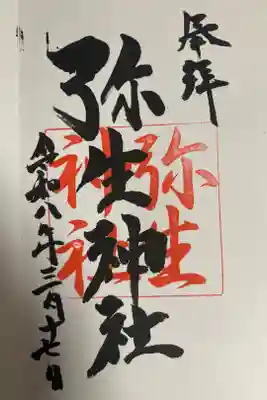 奉拝
弥生神社
弥生
神社
令和八年三月十七日